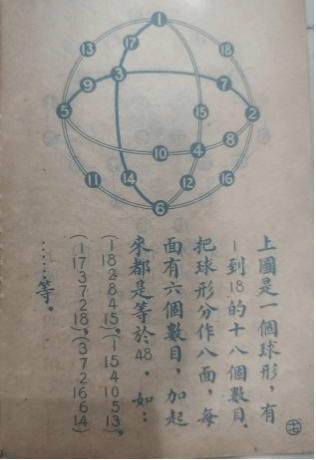 1
17
13
18
3
9
7
5
2
15
8
10
4
11
14
12
16
6
上圖是一個球形，有
1到18的十八個數目。
把球形分作八面，每
面有六個數目，加起
來都是等於48，如：
(1 18 2 8 4 15)，(1 15 4 10 5 13)，
(1 17 3 7 2 18)，(3 7 2 16 6 14)
……等。